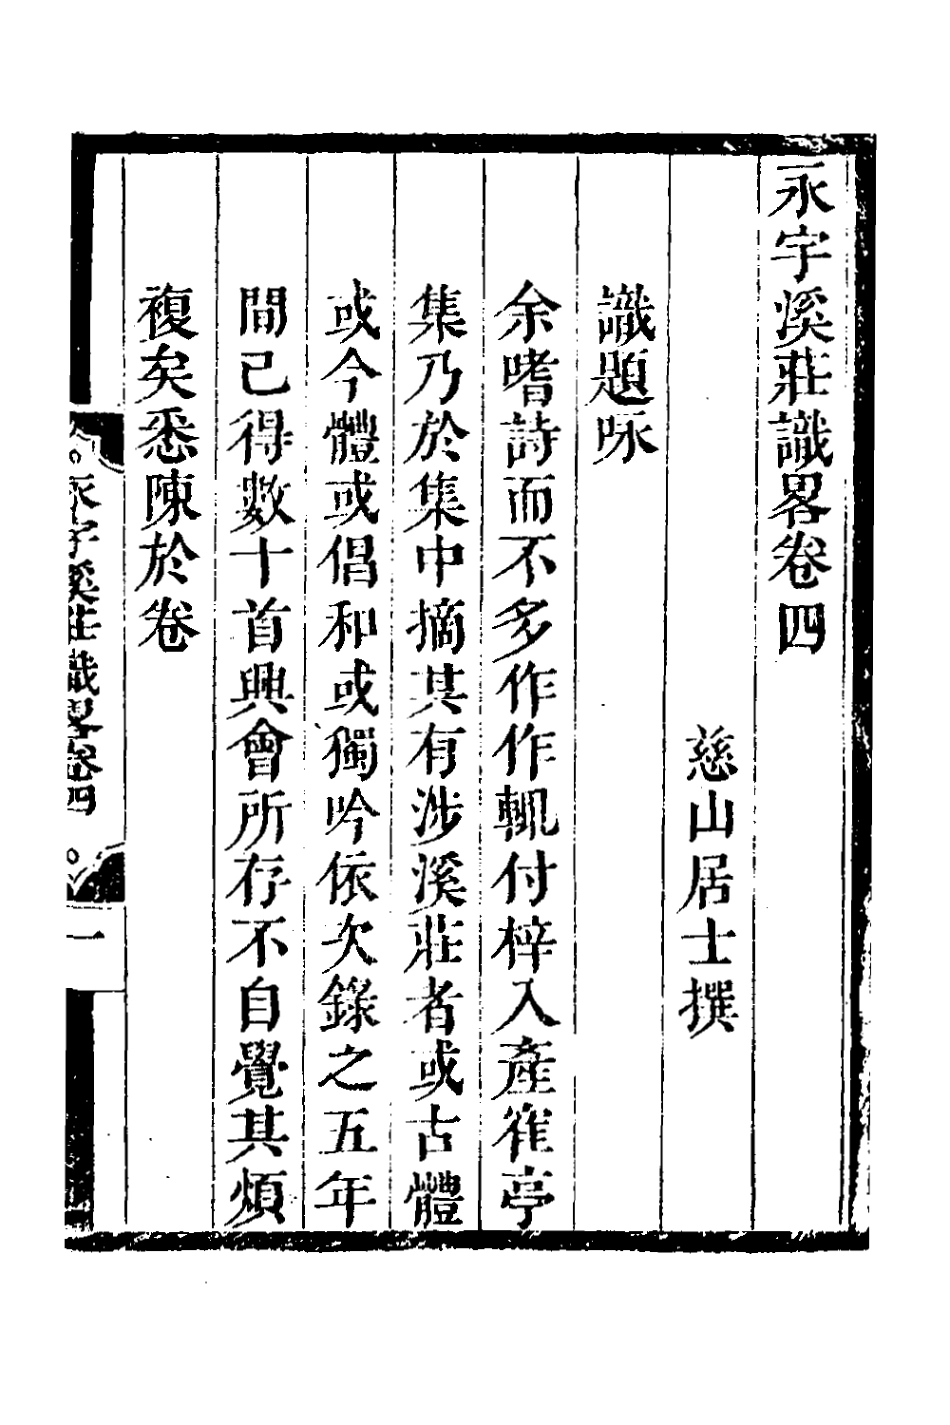 永宇溪莊識畧卷四
慈山居士撰
識題咏
余嗜詩而不多作作輒付梓入產崔亭
集乃於集中摘其有涉溪莊者或古體
或今體或倡和或獨吟依次錄之五年
間已得數十首興會所存不自覺其煩
複矣悉陳於卷
永宇溪莊識畧卷四
一